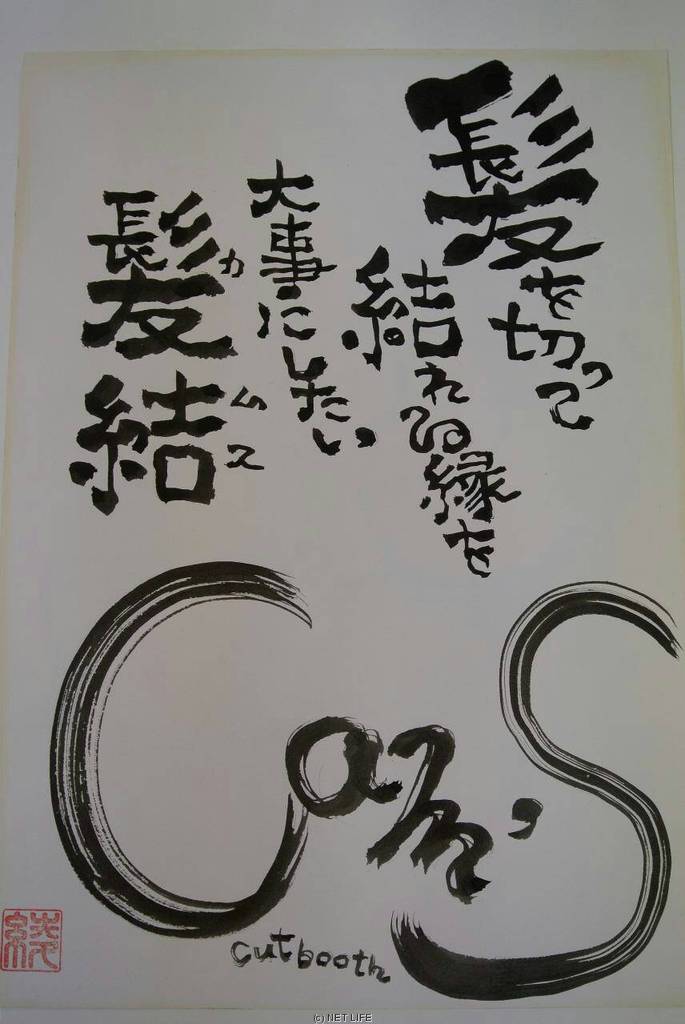 髪を切って
結れる縁を
大事にしたい
髪結
カムス
Cam's
cut booth
(c) NET LIFE